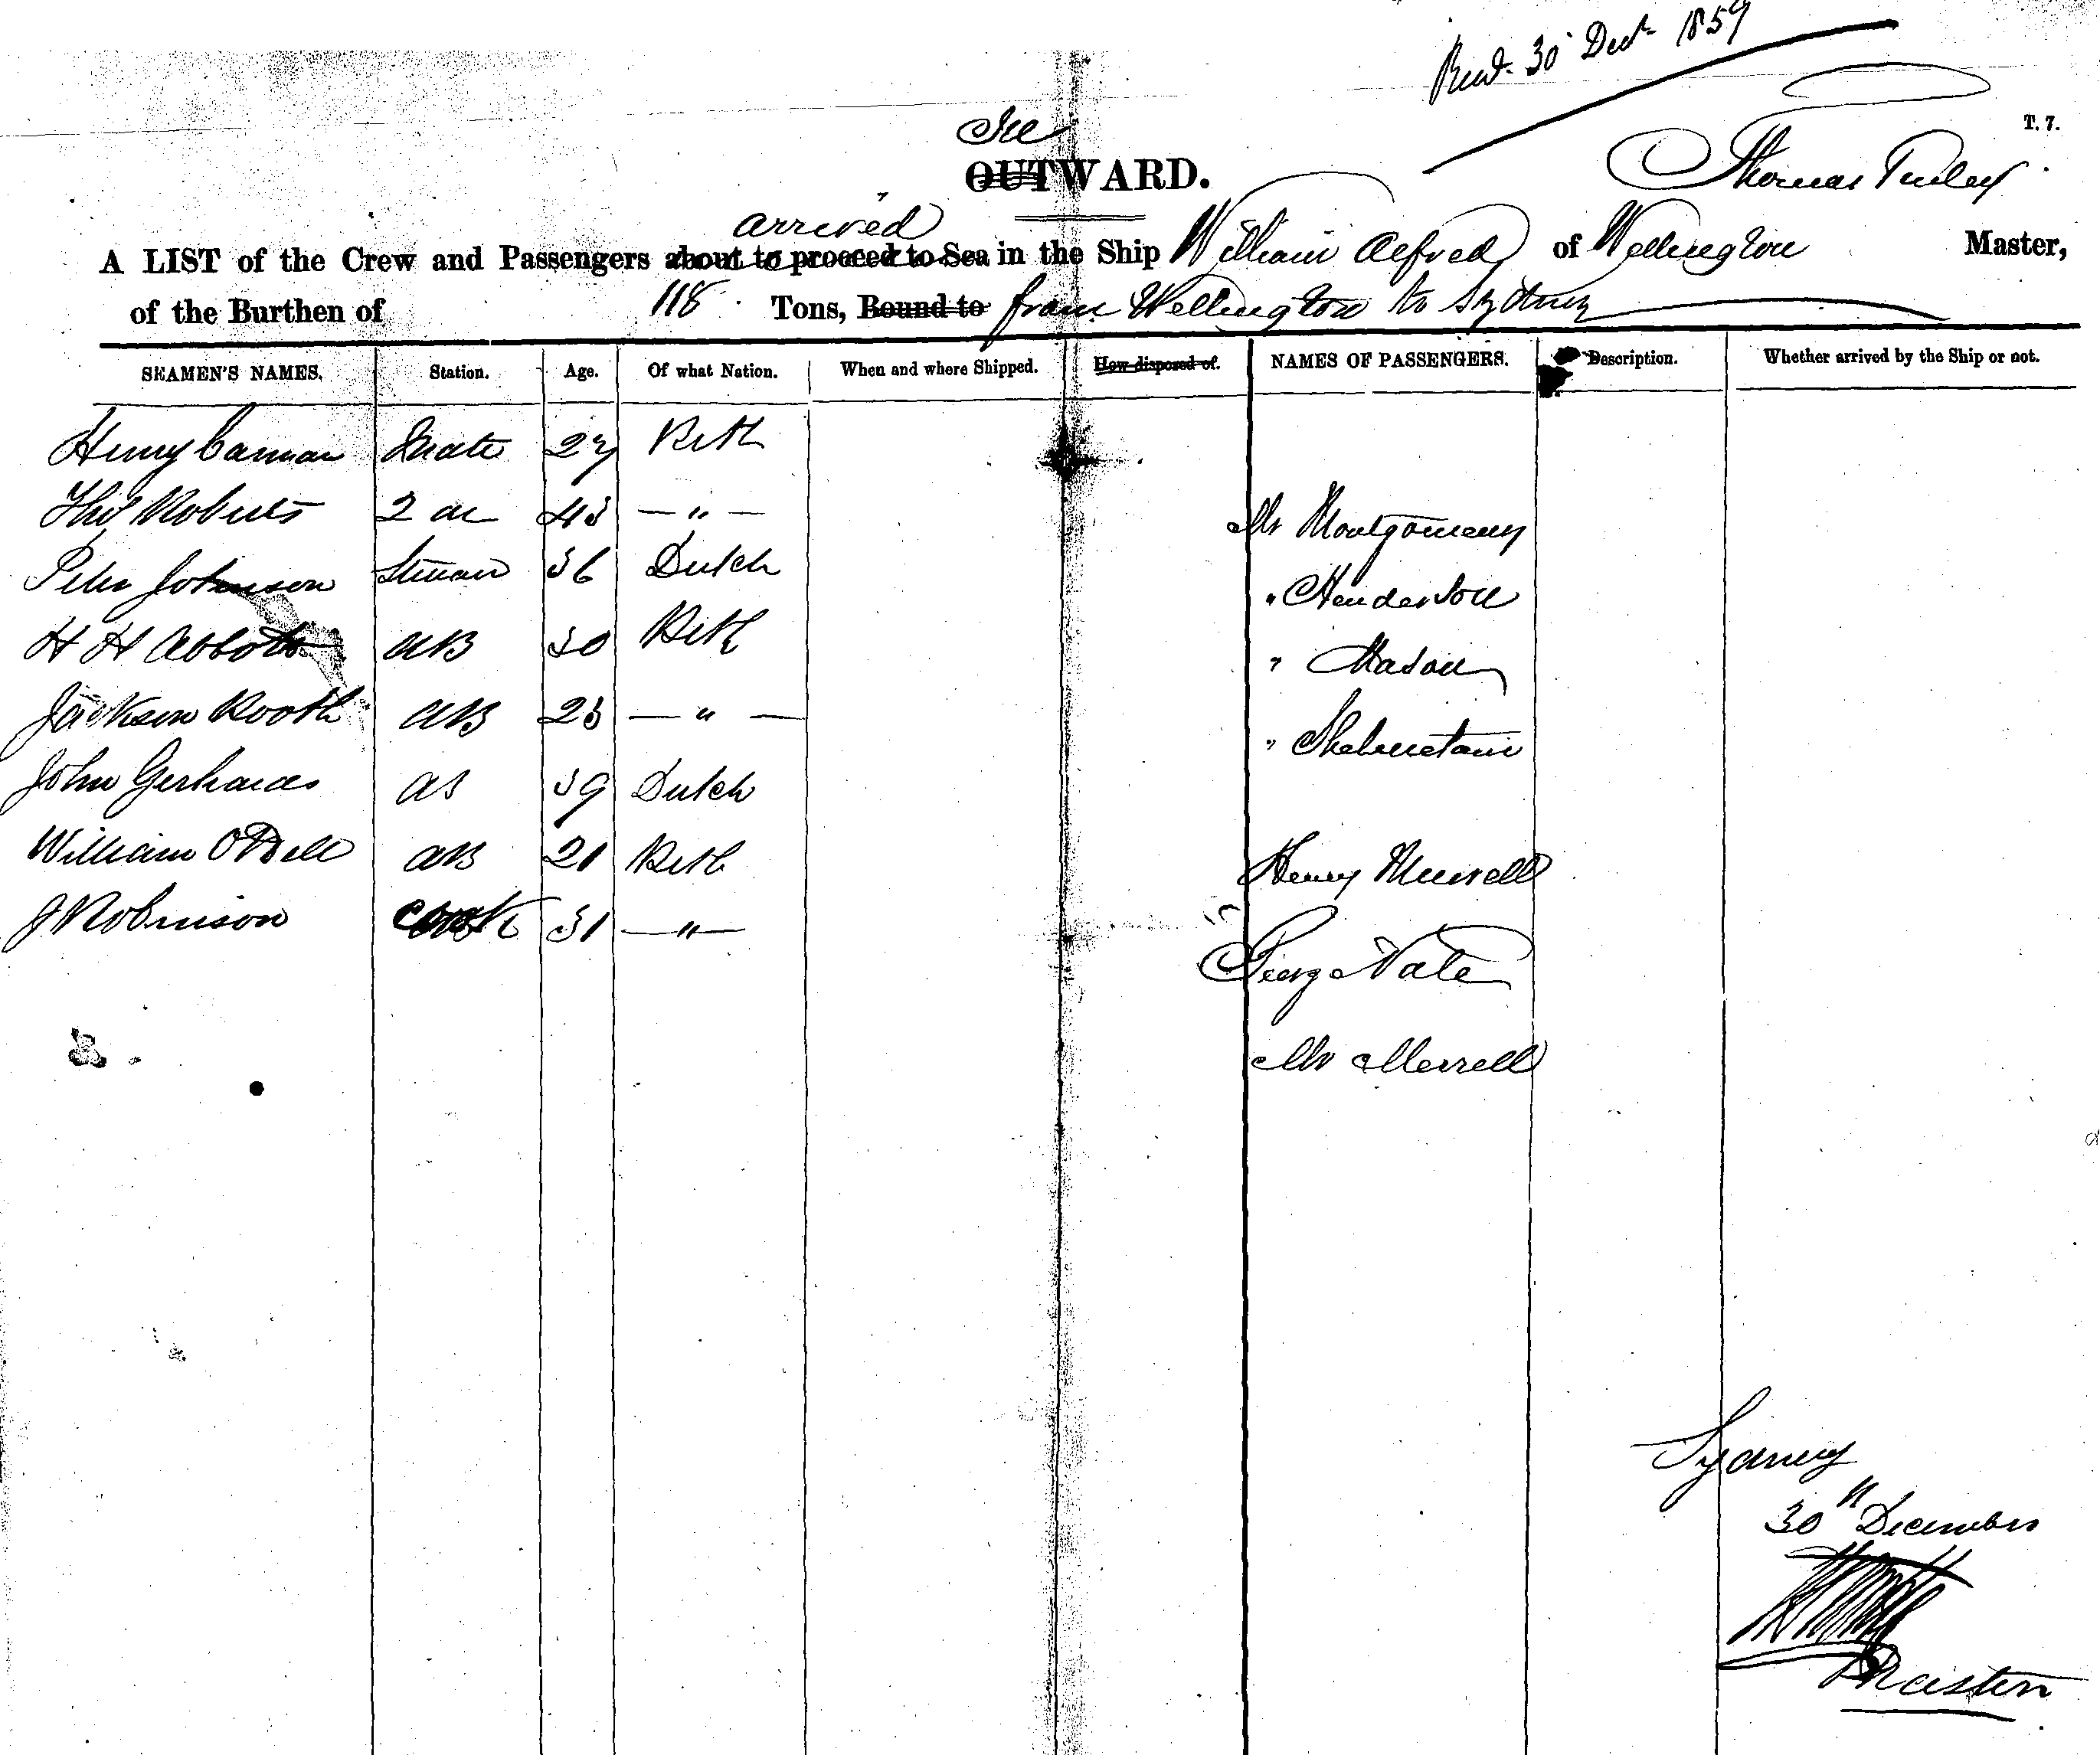 Recd. 30 Decr. 1859
T. 7.
In
OUTWARD.
Thomas
arrived
A LIST of the Crew and Passengers about to proceed to Sea in the Ship William Alfred of Wellington Master,
of the Burthen of 118 Tons, Bound to from Wellington to Sydney
SEAMEN'S NAMES. Station. Age. Of what Nation. When and where Shipped. How disposed of. NAMES OF PASSENGERS. Description. Whether arrived by the Ship or not.
Henry Mate 27
Roberts 2 43 — " — Mr Montgomery
Peter Johnson 36 Dutch " Henderson
H H Abbott AB 30 " Mason
Jackson Rooth AB 23 — " — "
John Gerhards AS 39 Dutch
William ODell AB 21 Henry
J Robinson Cook 31 — " — George
Mr Merrell
Sydney
30th December
Master